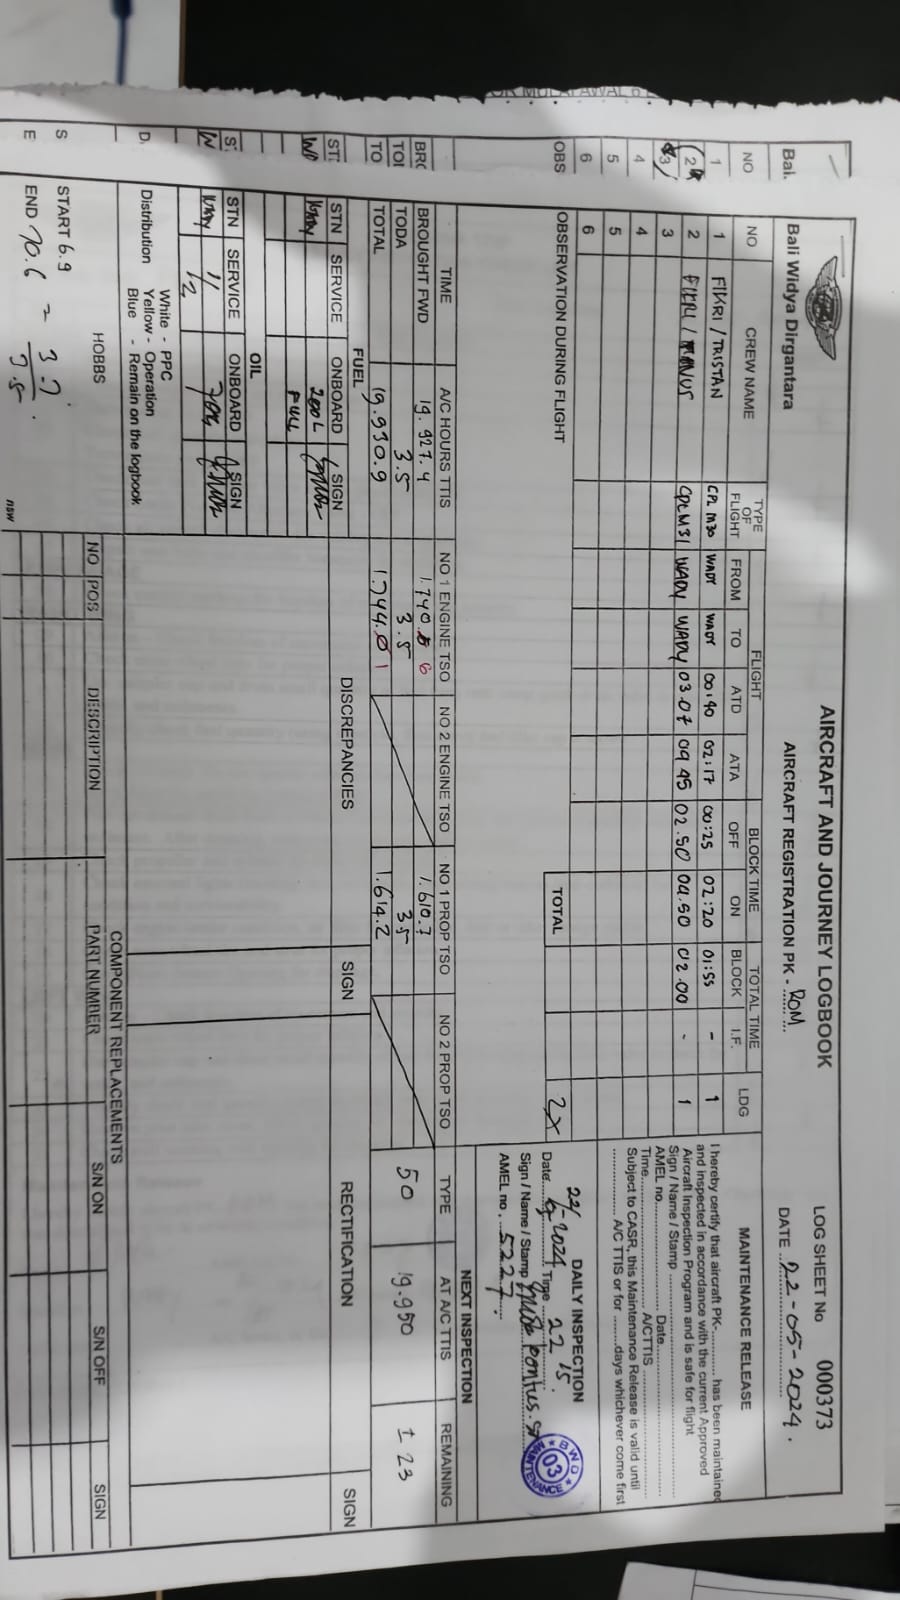 AIRCRAFT AND JOURNEY LOGBOOK
LOG SHEET No 000373
Bali Widya Dirgantara
AIRCRAFT REGISTRATION PK - ROM
DATE 22-05-2024.
NO CREW NAME TYPE OF FLIGHT FLIGHT BLOCK TIME TOTAL TIME LDG
FROM TO ATD ATA OFF ON BLOCK I.F.
1 FIKRI / TRISTAN CPL M30 WADY WADY 00:40 02:17 00:25 02:20 01:55 - 1
2 FIKRI / CPL M31 WADY WADY 03.07 04 45 02.50 04.50 02.00 - 1
3
4
5
6
OBSERVATION DURING FLIGHT
TOTAL 2x
MAINTENANCE RELEASE
I hereby certify that aircraft PK-............ has been maintained
and inspected in accordance with the current Approved
Aircraft Inspection Program and is safe for flight
Sign / Name / Stamp
AMEL no. Date
Time A/CTTIS
Subject to CASR, this Maintenance Release is valid until
A/C TTIS or for days whichever come first
DAILY INSPECTION
Date Time 22 15.
Sign / Name / Stamp
AMEL no. 5227
BWD
03
MAINTENANCE
TIME A/C HOURS TTIS NO 1 ENGINE TSO NO 2 ENGINE TSO NO 1 PROP TSO NO 2 PROP TSO
BROUGHT FWD 19.927.4 1.740.6 1.610.7
TODA 3.5 3.5 3.5
TOTAL 19.930.9 1.744.1 1.614.2
NEXT INSPECTION
TYPE AT A/C TTIS REMAINING
50 19.950 ± 23
FUEL
STN SERVICE ONBOARD SIGN
WADY 200 L
FULL
OIL
STN SERVICE ONBOARD SIGN
WADY
DISCREPANCIES SIGN RECTIFICATION SIGN
Distribution White - PPC
Yellow - Operation
Blue - Remain on the logbook
HOBBS
START 6.9
END 10.6 = 3.7
3.5
COMPONENT REPLACEMENTS
NO POS DESCRIPTION PART NUMBER S/N ON S/N OFF SIGN